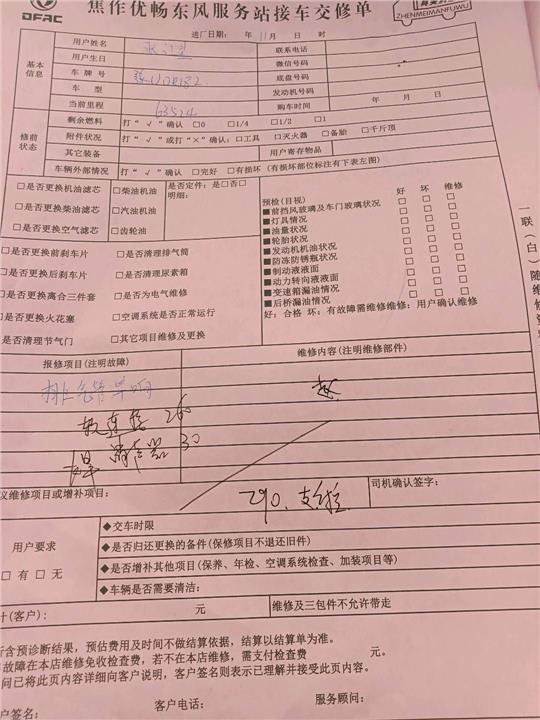 DFAC
焦作优畅东风服务站接车交修单
ZHENMEIMANFUWU
进厂日期： 年 11月 日 时
基本信息
用户姓名
联系电话
用户生日
微信号码
车 牌 号
底盘号码
车 型
发动机号码
当前里程 63524
购车时间 年 月 日
修前状态
剩余燃料 打“√”确认 □0 □1/4 □1/2 □1
附件状况 打“√”或打“×”确认：□工具 □灭火器 □备胎 □千斤顶
其它装备
用户寄存物品
车辆外部情况 打“√”确认 □完好 □有损坏（有损坏部位标注有下表左图）
□是否更换机油滤芯 □柴油机油 是否定件：是□否□
明细：
□是否更换柴油滤芯 □汽油机油
□是否更换空气滤芯 □齿轮油
□是否更换前刹车片 □是否清理排气筒
□是否更换后刹车片 □是否清理尿素箱
□是否更换离合三件套 □是否为电气维修
□是否更换火花塞 □空调系统是否正常运行
□是否清理节气门 □其它项目维修及更换
预检(目视) 好 坏 维修
■前挡风玻璃及车门玻璃状况 □ □ □
■灯具情况 □ □ □
■油量状况 □ □ □
■轮胎状况 □ □ □
■发动机机油状况 □ □ □
■防冻防锈瓶状况 □ □ □
■制动液液面 □ □ □
■动力转向液液面 □ □ □
■变速箱漏油情况 □ □ □
■后桥漏油情况 □ □ □
好：合格 坏：有故障需维修维修：用户确认维修
一联（白）随维修
报修项目(注明故障)
维修内容(注明维修部件)
排气管异响
软连接 260
焊 消声器 30
议维修项目或增补项目：
290.
司机确认签字：
用户要求
□有 □无
◆交车时限
◆是否归还更换的备件(保修项目不退还旧件)
◆是否增补其他项目(保养、年检、空调系统检查、加装项目等)
◆车辆是否需要清洁：
计(客户)： 元
维修及三包件不允许带走
所含预诊断结果，预估费用及时间不做结算依据，结算以结算单为准。
故障在本店维修免收检查费，若不在本店维修，需支付检查费 元。
问已将此页内容详细向客户说明，客户签名则表示已理解并接受此页内容。
户签名： 客户电话： 服务顾问：